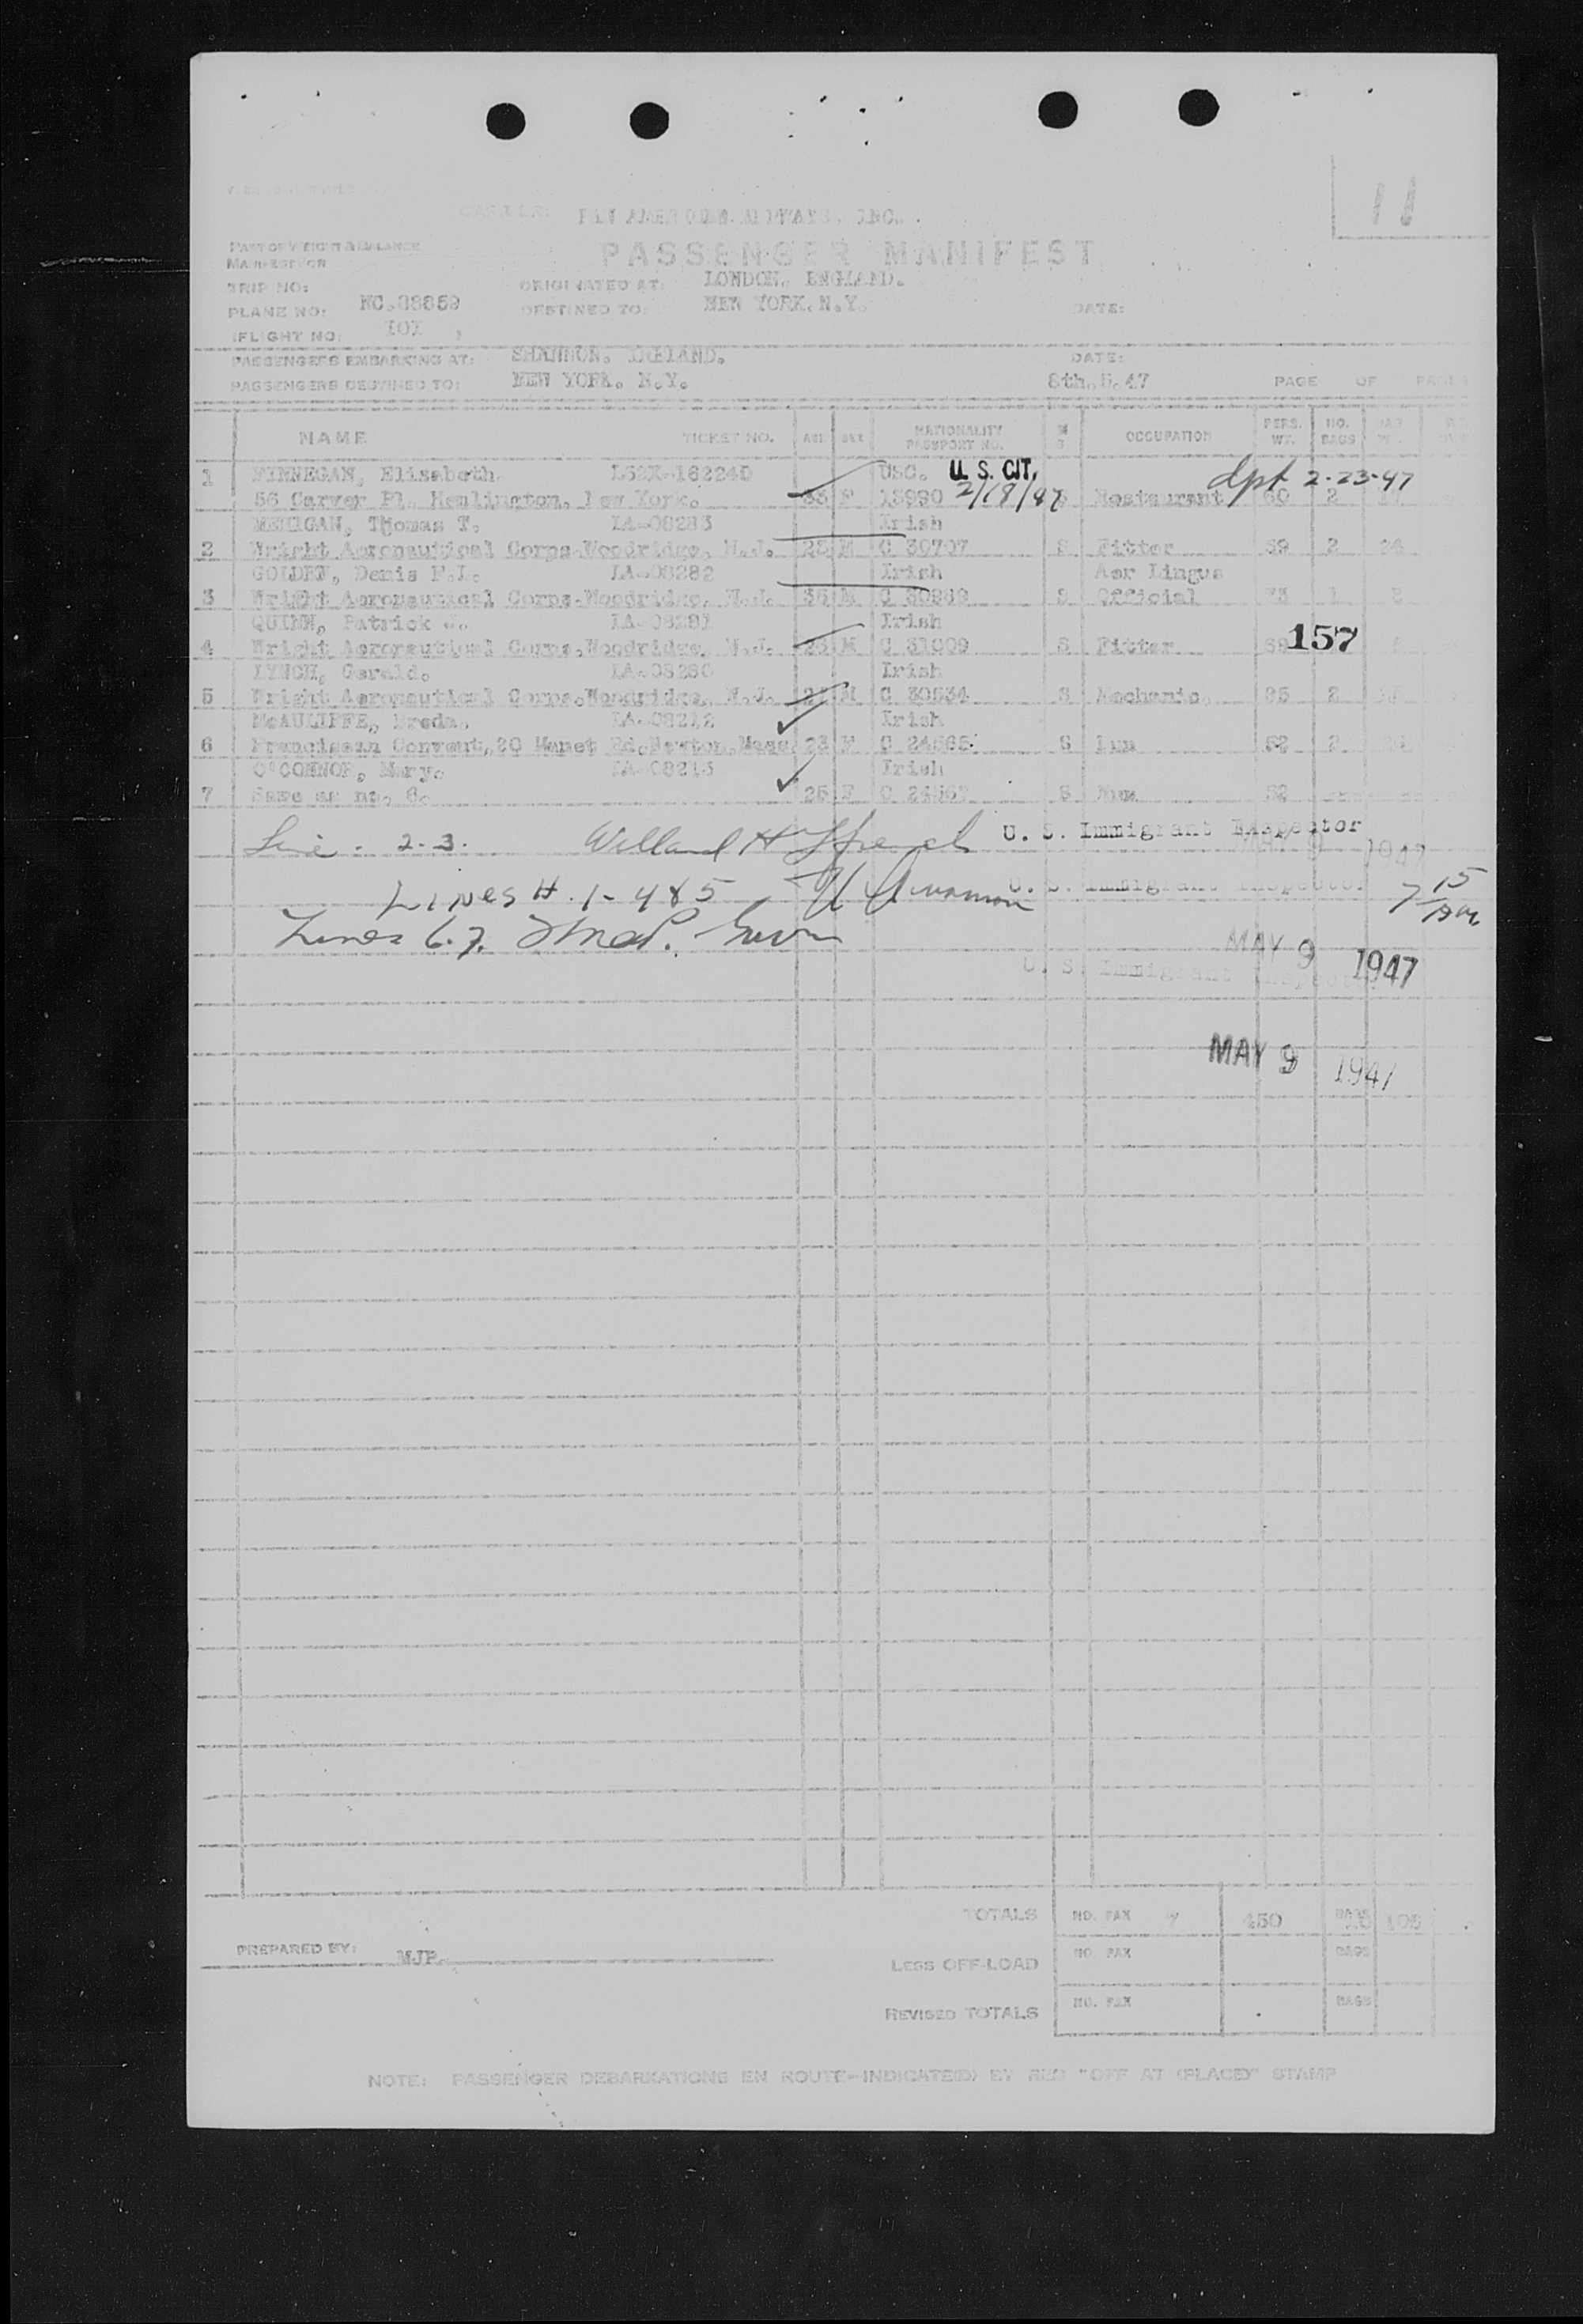 11
CARRIER: PAN AMERICAN AIRWAYS, INC.
PART OF WEIGHT & BALANCE
PASSENGER MANIFEST
MANIFEST FOR
TRIP NO: ORIGINATED AT: LONDON, ENGLAND.
PLANE NO: NC.88859 DESTINED TO: NEW YORK. N.Y. DATE:
FLIGHT NO: 101
PASSENGERS EMBARKING AT: SHANNON. IRELAND. DATE:
PASSENGERS DESTINED TO: NEW YORK. N.Y. 8th.5.47 PAGE OF PAGES
NAME TICKET NO. AGE SEX NATIONALITY PASSPORT NO. M S OCCUPATION PERS. WT. NO. BAGS BAG WT.
1 FINNEGAN, Elizabeth. L52X-16224D USC. U. S. CIT. dpt 2-23-47
56 Carver Pl. Hemlington. New York. 33 F 13990 2/18/47 S Restaurant 60 2
MEHIGAN, Thomas T. IA-08283 Irish
2 Wright Aeronautical Corps-Woodridge, N.J. 25 M C 30707 S Fitter 69 2 24
GOLDEN, Denis F.I. IA-08282 Irish Aer Lingus
3 Wright Aeronautical Corps-Woodridge. N.J. 36 M C S Official 73 1
QUINN, Patrick J. IA-08281 Irish
4 Wright Aeronautical Corps.Woodridge. N.J. 26 M C 31009 S Fitter 157
LYNCH, Gerald. IA-08280 Irish
5 Wright Aeronautical Corps.Woodridge. N.J. M C 30534 S Mechanic. 2
McAULIFFE, Breda. IA-08212 Irish
6 Franciscan Convent,20 Manet Rd.Newton.Mass 23 F C 24565 S Nun 52 2
O'CONNOR, Mary. IA-08213 Irish
7 Same as no. 6. 26 F C S Nun 52
2-3. Willard H U. S. Immigrant Inspector
MAY 9 1947
Lines #. 1-4&5 U. S. Immigrant Inspector 7 15 AM
Lines 6.7.
MAY 9 1947
U. S. Immigrant Inspector
MAY 9 1947
TOTALS NO. PAX 7 450 BAGS
PREPARED BY: MJP. NO. PAX BAGS
LESS OFF-LOAD
REVISED TOTALS NO. PAX BAGS
NOTE: PASSENGER DEBARKATIONS EN ROUTE-INDICATE(D) BY RED "OFF AT (PLACE)" STAMP